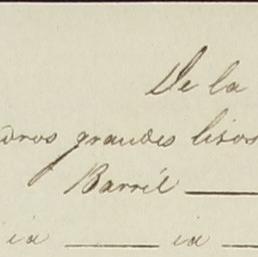 De la
dros grandes lisos
Barril
id id